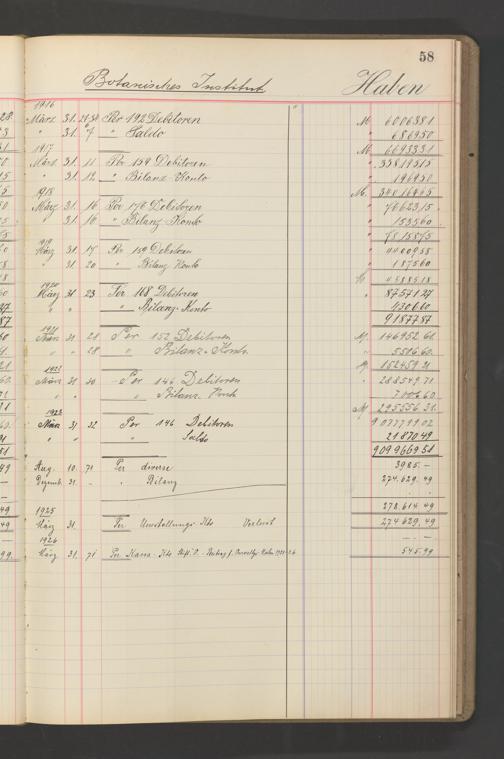 58
Botanisches Institut Haben
1916
März 31. Per 192 Debitoren M. 6006381
" 31. 7 " Saldo " 686950
M. 6693331
1917
März 31. 11 Per 159 Debitoren
" 31. 12 " Bilanz-Konto " 196950
M.
1918
März 31. 16 Per 176 Debitoren " 7662315
" 31. 16 " Bilanz-Konto " 153560
" 7815875
1919
März 31. 17 Per 159 Debitoren " 4400958
" 31. 20 " Bilanz Konto " 187560
M. 4588518
1920
März 31. 23 Per 168 Debitoren " 8757127
" " " Bilanz-Konto 430660
9187787
1921
März 31. 28 Per 152 Debitoren M. 146952 61
" " 28 " Bilanz-Konto " 5506 60
M. 152459 21
März 31. 30 Per 146 Debitoren " 288549 71
" " " Bilanz-Konto 7006 60
M. 295556 31
1923
März 31. 32 Per 146 Debitoren
" " " Saldo 21870 49
909966951
Aug. 10. 71 Per diverse 3985.-
Dezemb. 31. - " Bilanz 274.629.49
278.614 49
1925
März 31. Per Umstellungs-Kto Verlust 274629.49
1926
März 31. 71 Per Kassa-Kto 545.99